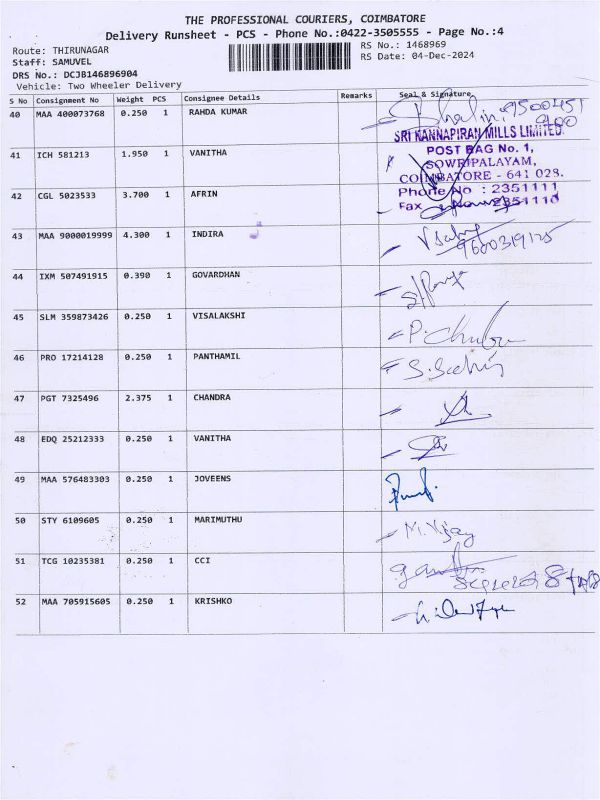 THE PROFESSIONAL COURIERS, COIMBATORE
Delivery Runsheet - PCS - Phone No.:0422-3505555 - Page No.:4
Route: THIRUNAGAR RS No.: 1468969
Staff: SAMUVEL RS Date: 04-Dec-2024
DRS No.: DCJB146896904
Vehicle: Two Wheeler Delivery
S No Consignment No Weight PCS Consignee Details Remarks Seal & Signature
40 MAA 400073768 0.250 1 RAHDA KUMAR
SRI KANNAPIRAN MILLS LIMITED
41 ICH 581213 1.950 1 VANITHA
POST BAG No. 1,
SOWRIPALAYAM,
COIMBATORE - 641 028.
42 CGL 5023533 3.700 1 AFRIN
Phone No : 2351111
Fax 2351110
43 MAA 9000019999 4.300 1 INDIRA
44 IXM 507491915 0.390 1 GOVARDHAN
45 SLM 359873426 0.250 1 VISALAKSHI
46 PRO 17214128 0.250 1 PANTHAMIL
47 PGT 7325496 2.375 1 CHANDRA
48 EDQ 25212333 0.250 1 VANITHA
49 MAA 576483303 0.250 1 JOVEENS
50 STY 6109605 0.250 1 MARIMUTHU M. Vijay
51 TCG 10235381 0.250 1 CCI
52 MAA 705915605 0.250 1 KRISHKO